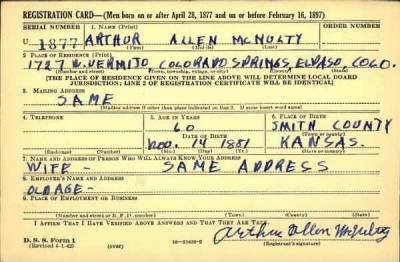 REGISTRATION CARD—(Men born on or after April 28, 1877 and on or before February 16, 1897)
SERIAL NUMBER 1. NAME (Print)
U 1877 ARTHUR ALLEN McNULTY
(First) (Middle) (Last)
2. PLACE OF RESIDENCE (Print)
1727 W. VERMIJO COLORADO SPRINGS, ELPASO, COLO.
(Number and street) (Town, township, village, or city) (County) (State)
[THE PLACE OF RESIDENCE GIVEN ON THE LINE ABOVE WILL DETERMINE LOCAL BOARD
JURISDICTION; LINE 2 OF REGISTRATION CERTIFICATE WILL BE IDENTICAL]
3. MAILING ADDRESS
SAME
[Mailing address if other than place indicated on line 2. If same insert word same]
4. TELEPHONE 5. AGE IN YEARS 6. PLACE OF BIRTH
60 SMITH COUNTY
DATE OF BIRTH (Town or county)
NOV. 14 1881 KANSAS.
(Exchange) (Number) (Mo.) (Day) (Yr.) (State or country)
7. NAME AND ADDRESS OF PERSON WHO WILL ALWAYS KNOW YOUR ADDRESS
WIFE — SAME ADDRESS
8. EMPLOYER'S NAME AND ADDRESS
OLD AGE —
9. PLACE OF EMPLOYMENT OR BUSINESS
(Number and street or R. F. D. number) (Town) (County) (State)
I AFFIRM THAT I HAVE VERIFIED ABOVE ANSWERS AND THAT THEY ARE TRUE.
D. S. S. Form 1
(Revised 4-1-42) (over) Arthur Allen McNulty
(Registrant's signature)